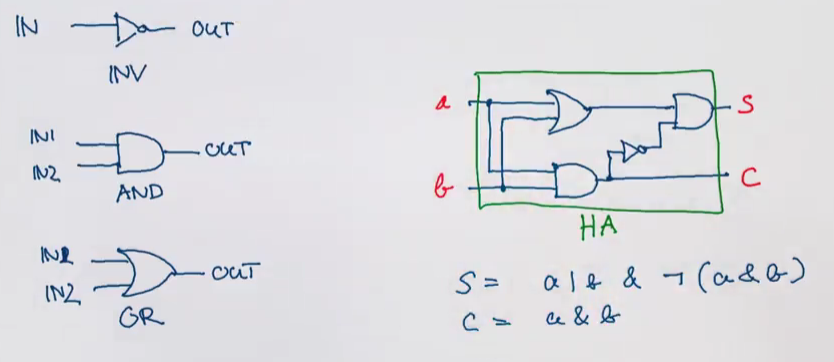 IN OUT
INV
IN1
IN2 OUT
AND
IN1
IN2 OUT
OR
a S
b C
HA
S = a | b & ¬ (a & b)
C = a & b